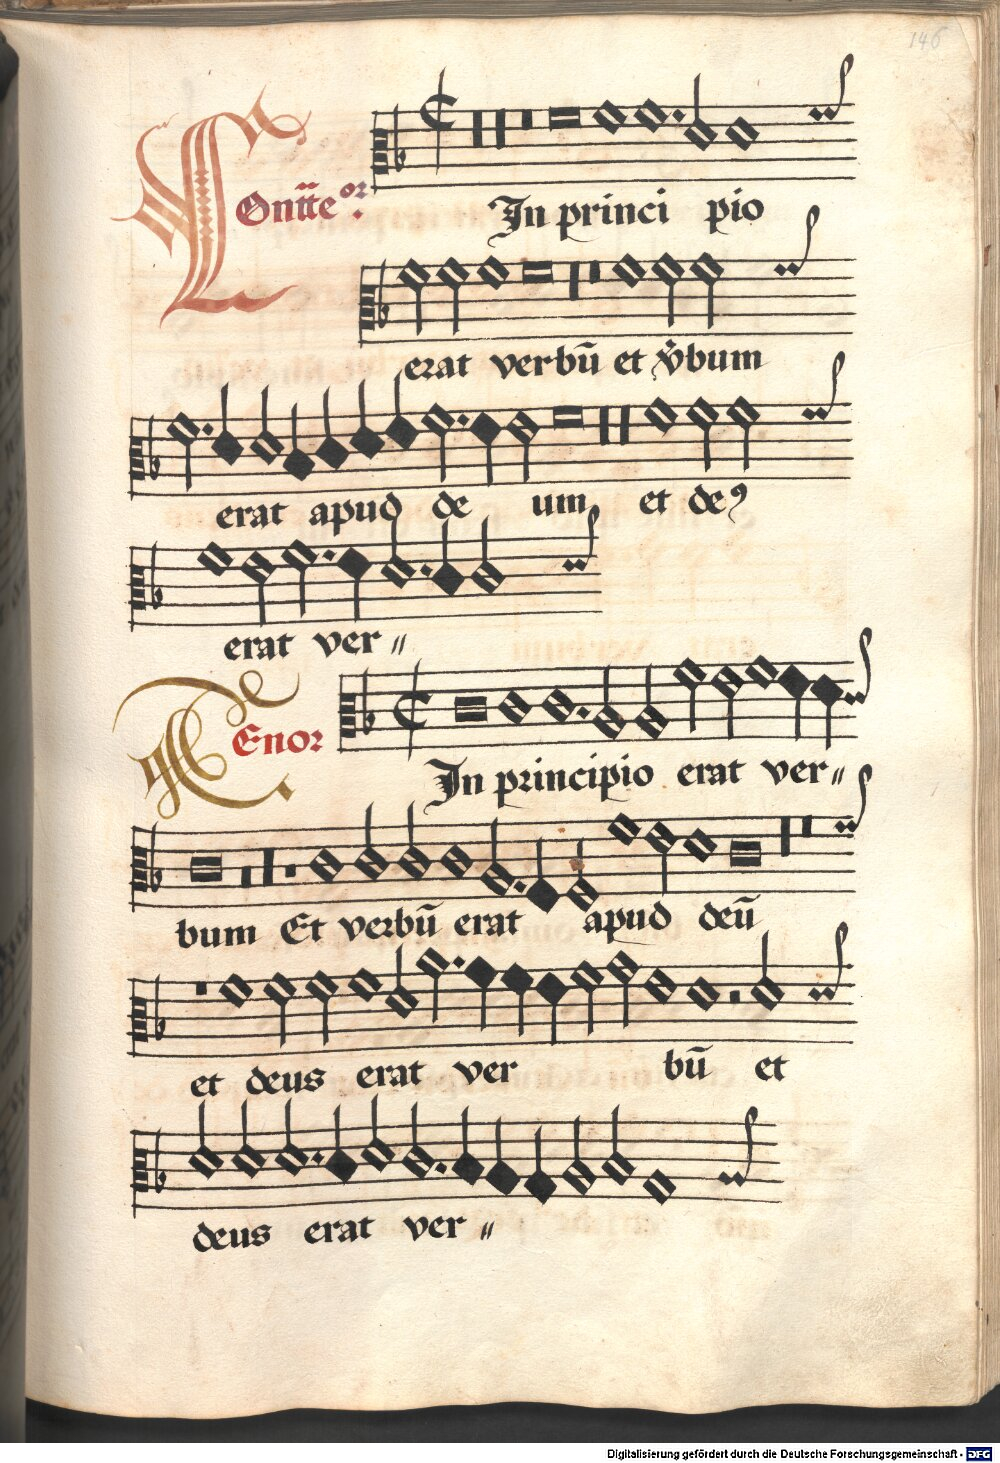 146
Contͭeor.
In princi pio
erat verbū et v̉bum
erat apud de um et deꝰ
erat ver〃
Tenor
In principio erat ver〃
bum Et verbū erat apud deū
et deus erat ver bū et
deus erat ver〃
Digitalisierung gefördert durch die Deutsche Forschungsgemeinschaft - DFG